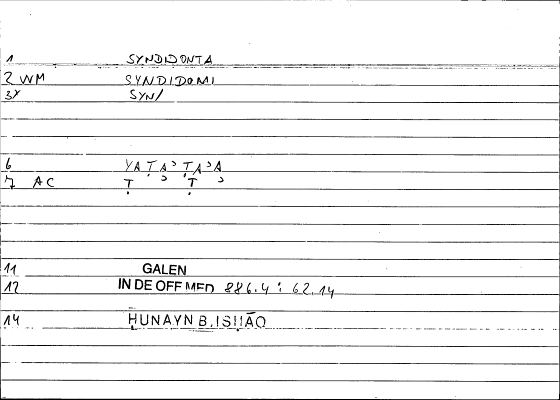 1 SYNDIDONTA
2 WM SYNDIDOMI
3Y SYN/
6 YAṬAʾṬAʾA
7 AC Ṭ Ṭ
11 GALEN
12 IN DE OFF MED 886.4 : 62.14
14 ḤUNAYN B. ISḤĀQ